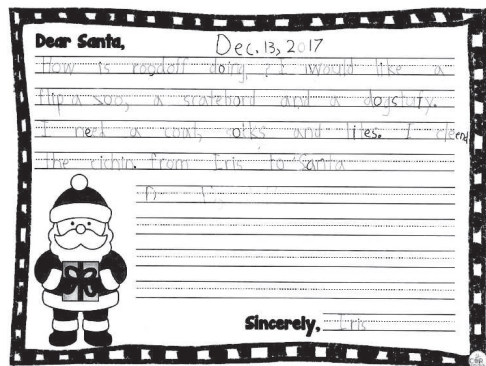 Dear Santa,
Dec. 13, 2017
How is roodoff doing? I would like a
flip a soo, a scatebord and a dogstufy.
I need a coat, socks and lites. I cleend
the cichin. from Iris to Santa
Sincerely, Iris